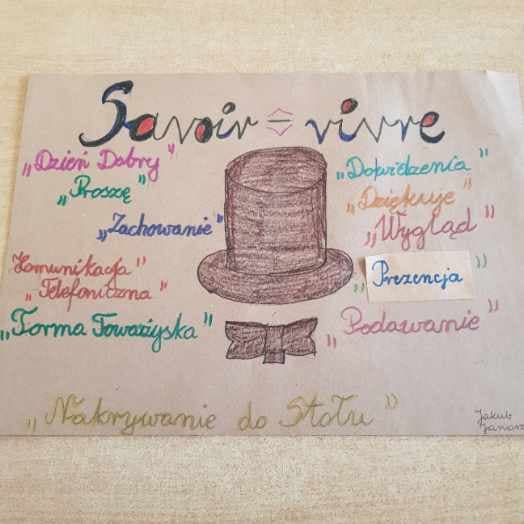 Savoir = vivre
„Dzień Dobry"
„Proszę"
„Zachowanie"
„Komunikacja"
„Telefoniczna"
„Forma Towarzyska"
„Dowidzenia"
„Dziękuje"
„Wygląd"
„Prezencja"
„Podawanie"
„Nakrywanie do Stołu"
Jakub